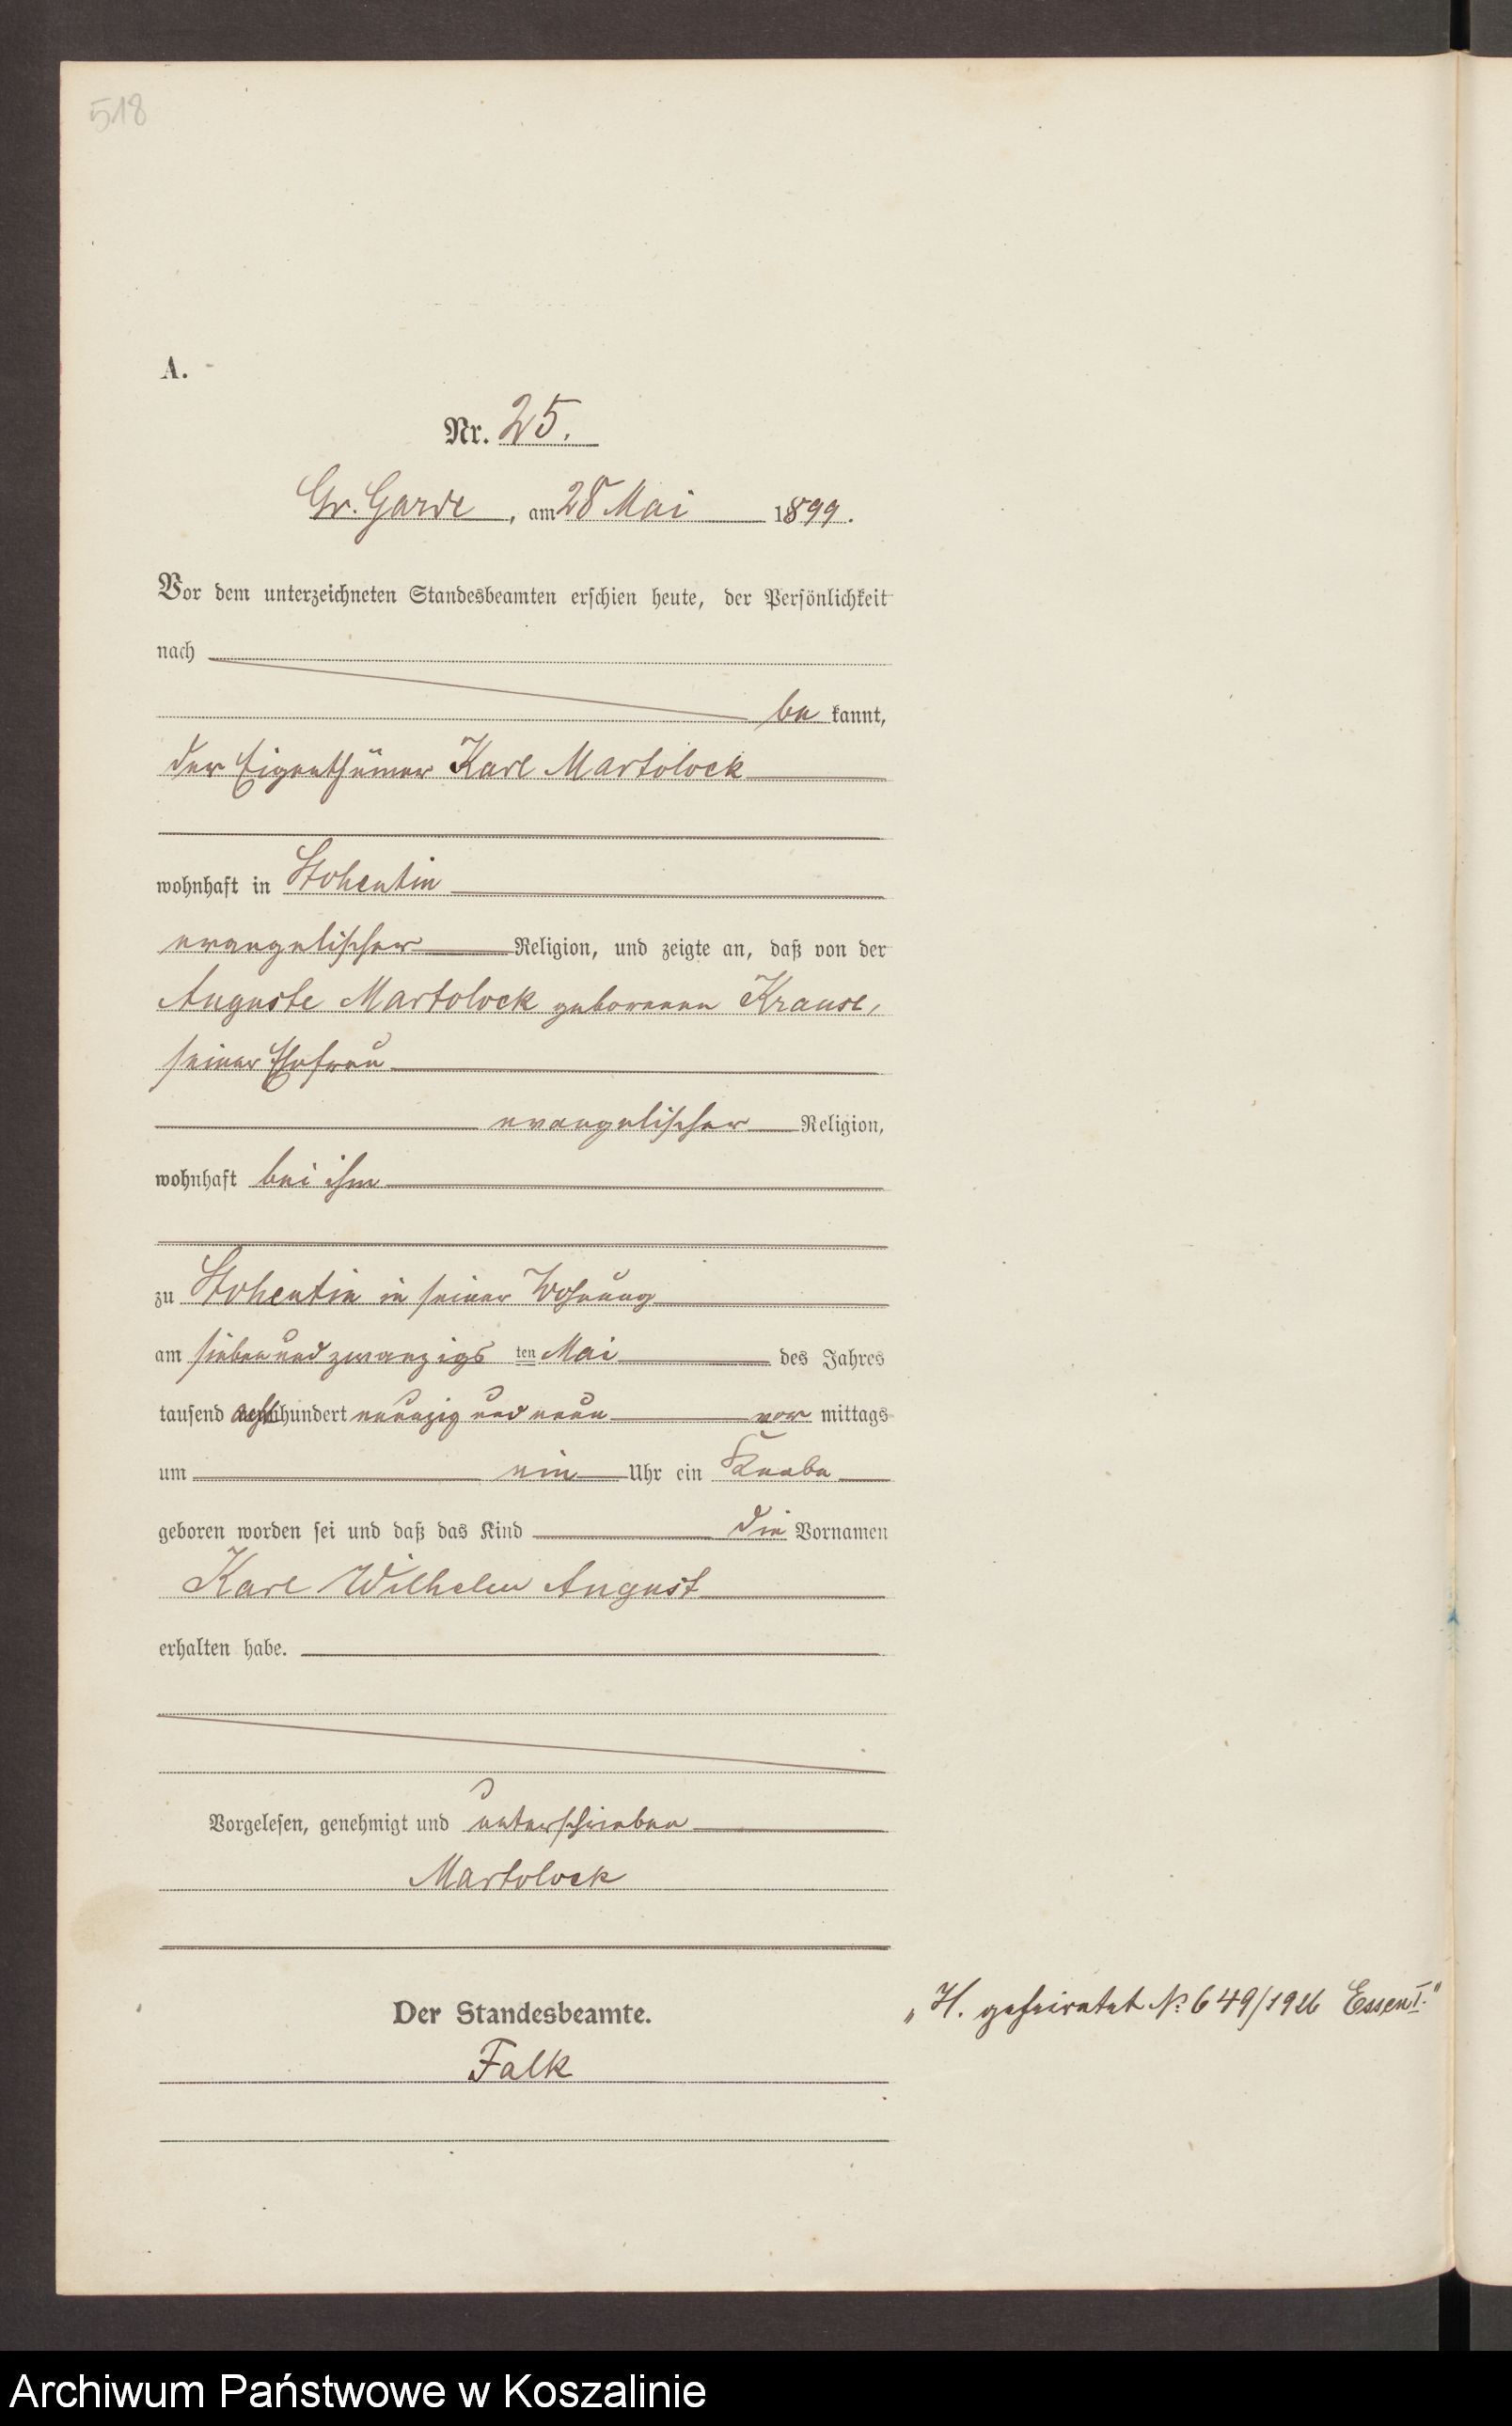 518
A.
Nr. 25.
Gr. Garde, am 28 Mai 1899.
Vor dem unterzeichneten Standesbeamten erschien heute, der Persönlichkeit
nach
be kannt,
der Eigenthümer Karl Martolock
wohnhaft in Stohentin
evangelischer Religion, und zeigte an, daß von der
Auguste Martolock geborenen Krause,
seiner Ehefrau
evangelischer Religion,
wohnhaft bei ihm
zu Stohentin in seiner Wohnung
am siebenundzwanzigs ten Mai des Jahres
tausend achthundert neunzig und neun vor mittags
um ein Uhr ein Knabe
geboren worden sei und daß das Kind die Vornamen
Karl Wilhelm August
erhalten habe.
Vorgelesen, genehmigt und unterschrieben
Martolock
Der Standesbeamte.
Falk
„H. geheiratet No 649/1926 Essen I."
Archiwum Państwowe w Koszalinie